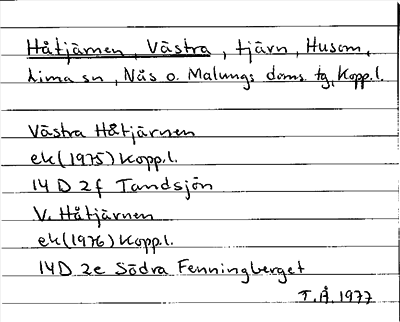 Håtjärnen, Västra, tjärn, Husom,
Lima sn, Näs o. Malungs doms. tg, Kopp.l.
Västra Håtjärnen
ek (1975) Kopp.l.
14 D 2f Tandsjön
V. Håtjärnen
ek (1976) Kopp.l.
14D 2e Södra Fenningberget
T.Å. 1977